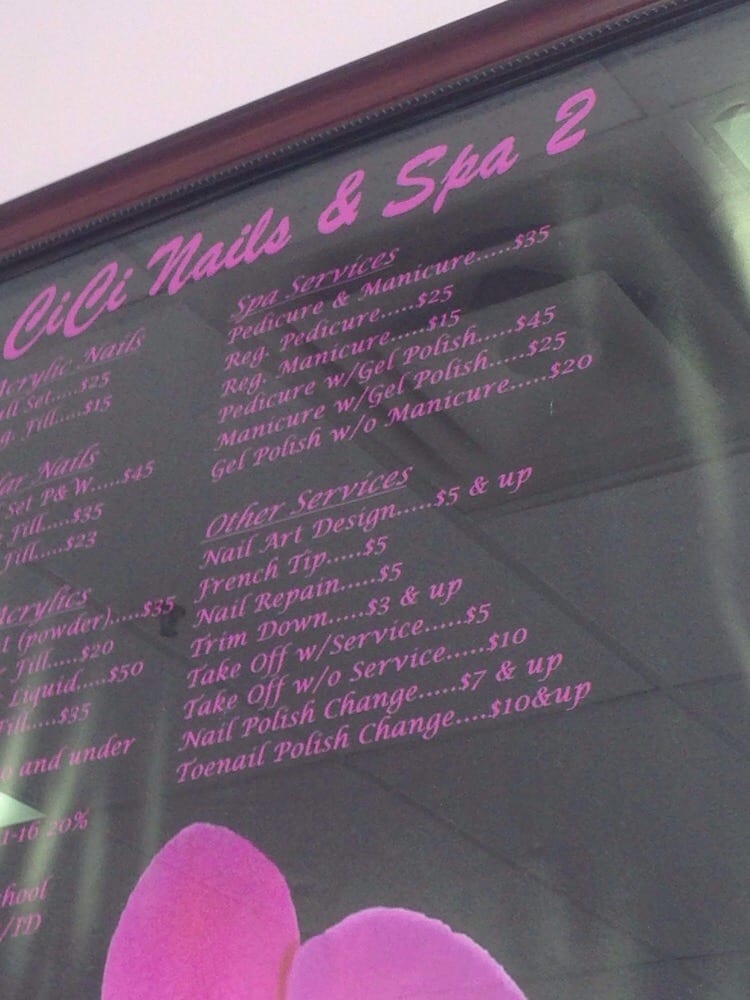 CiCi Nails & Spa 2
Acrylic Nails
Full Set.....$25
Fill.....$15
Nails
Set P&W.....$45
Fill.....$35
Fill.....$23
Acrylics
(powder).....$35
Fill.....$20
Liquid.....$50
Fill.....$35
and under
1-16 20%
/ID
Spa Services
Pedicure & Manicure.....$35
Reg. Pedicure.....$25
Reg. Manicure.....$15
Pedicure w/Gel Polish.....$45
Manicure w/Gel Polish.....$25
Gel Polish w/o Manicure.....$20
Other Services
Nail Art Design.....$5 & up
French Tip.....$5
Nail Repair.....$5
Trim Down.....$3 & up
Take Off w/Service.....$5
Take Off w/o Service.....$10
Nail Polish Change.....$7 & up
Toenail Polish Change....$10&up